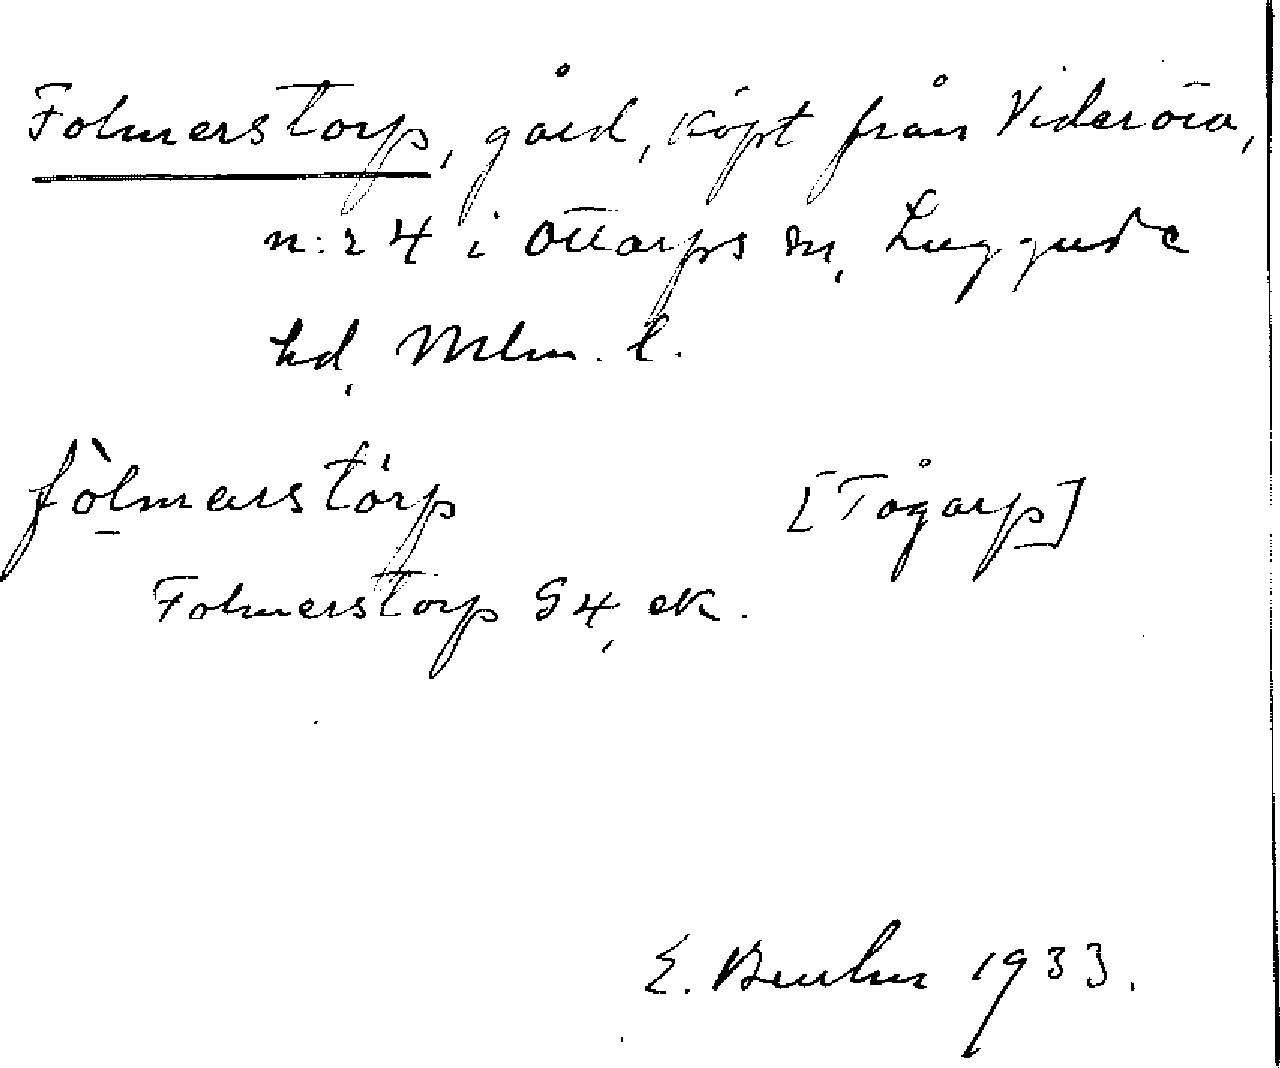 Folmerstorp, gård, köpt från Videröra,
n:r 4 i Ottarps sn, Luggude
hd, Mlm. l.
fòlmarstórp [Tågarp]
Folmerstorp G4, ek.
E. 1933.